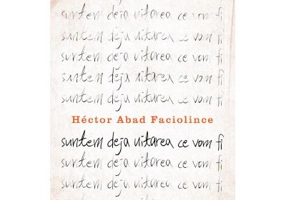 suntem deja uitarea ce vom fi
suntem deja uitarea ce vom fi
suntem deja uitarea ce vom fi
suntem deja uitarea ce vom fi
suntem deja uitarea ce vom fi
Héctor Abad Faciolince
suntem deja uitarea ce vom fi
suntem deja uitarea ce vom fi
suntem deja uitarea ce vom fi